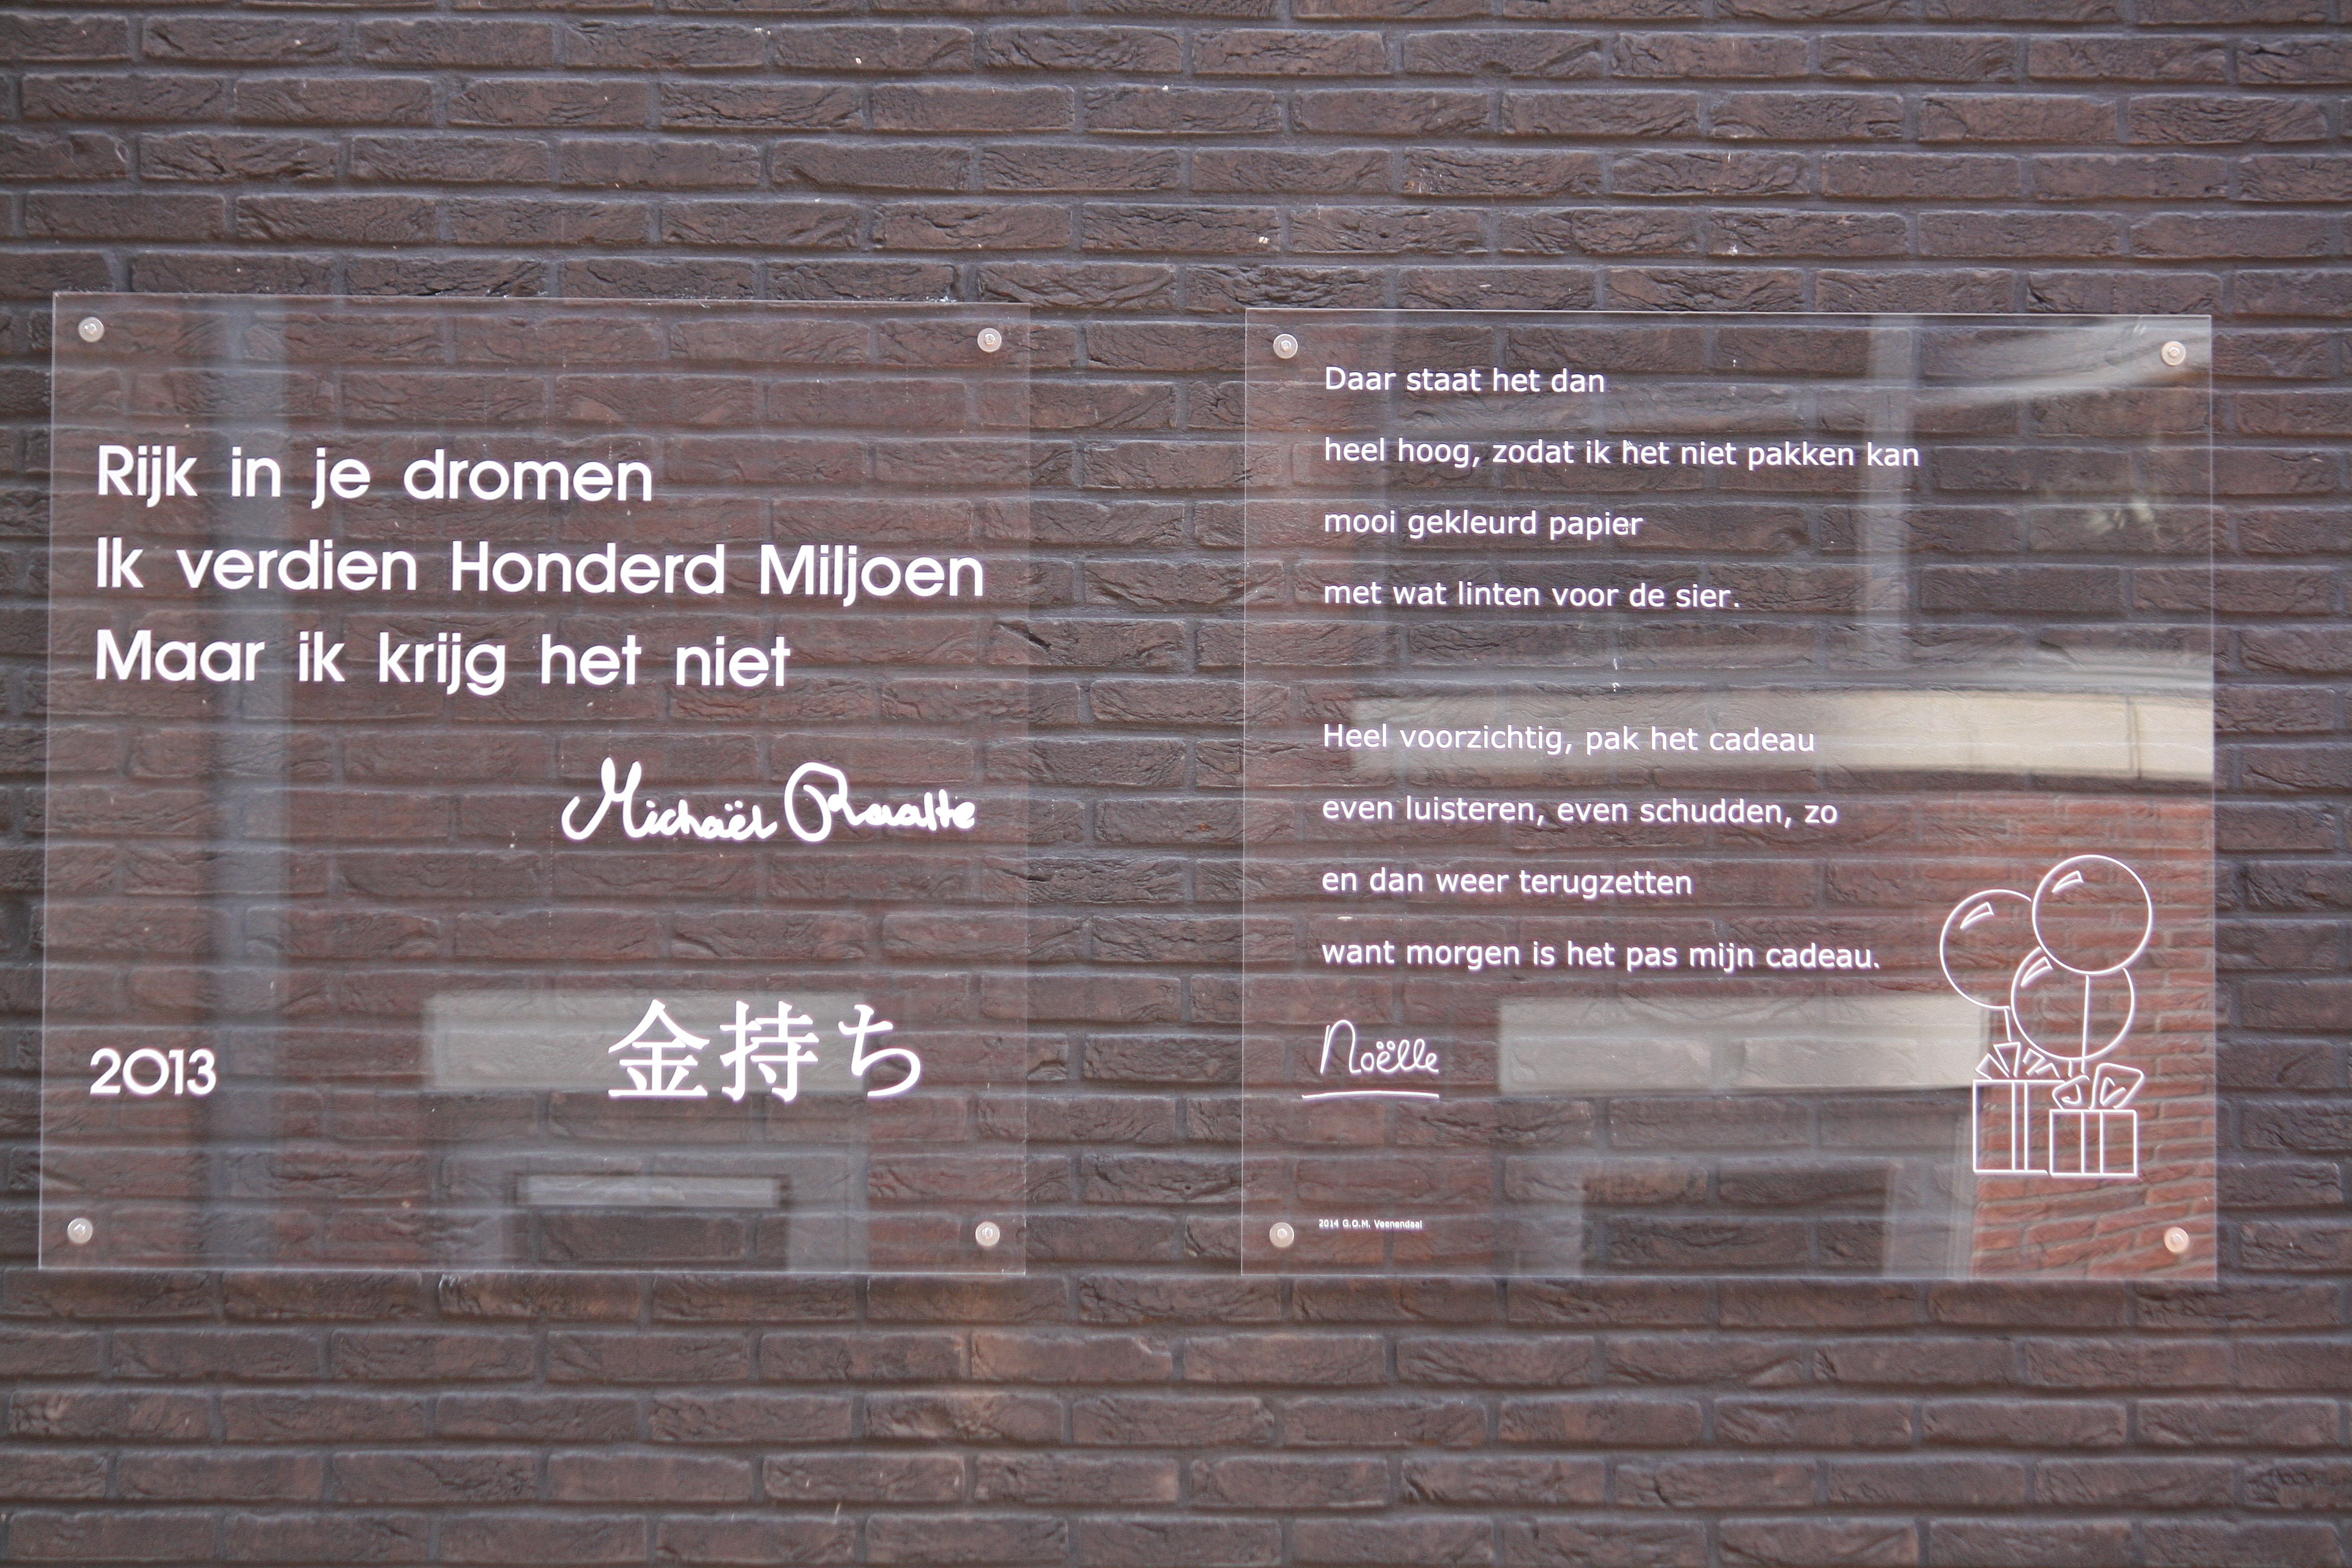 Rijk in je dromen
Ik verdien Honderd Miljoen
Maar ik krijg het niet
Michaël Raalte
2013
金持ち
Daar staat het dan
heel hoog, zodat ik het niet pakken kan
mooi gekleurd papier
met wat linten voor de sier.
Heel voorzichtig, pak het cadeau
even luisteren, even schudden, zo
en dan weer terugzetten
want morgen is het pas mijn cadeau.
Noëlle
2014 G.O.M. Veenendaal